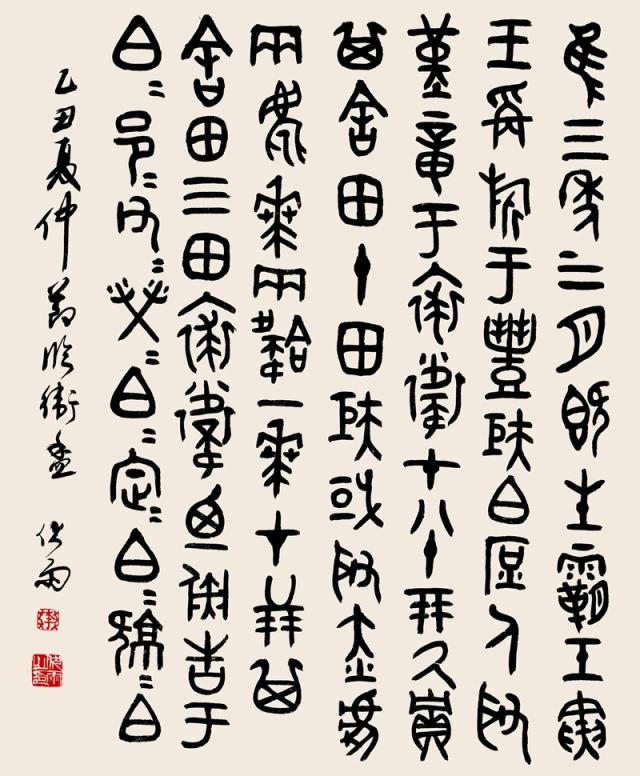 隹三年三月既生霸壬寅
王爯旂于豐矩白庶人取
堇章于裘衛才八十朋厥貯
其舍田十田矩或取赤虎
兩麀𠦪兩𠦪韐一才廿朋其
舍田三田裘衛廼彘告于
白邑父榮白定白白
乙丑夏仲臨衛盉